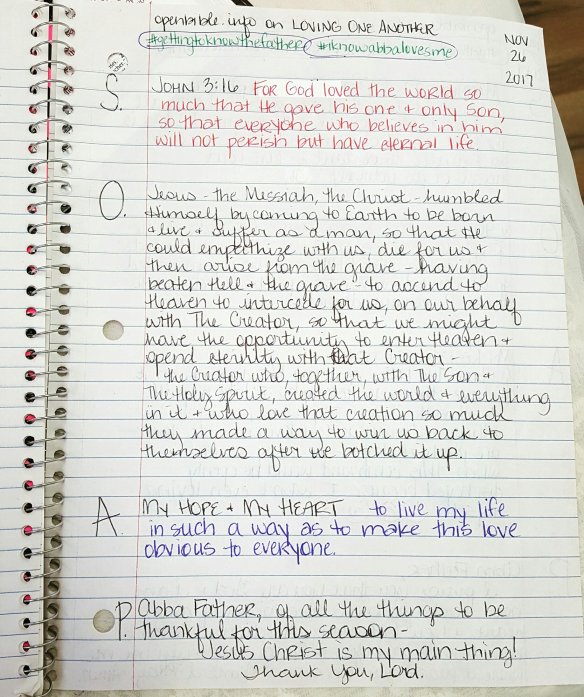 openbible.info on LOVING ONE ANOTHER
#gettingtoknowthefather #iknowabbalovesme
NOV
26
2017
S. JOHN 3:16 FOR God loved the world so
much that He gave his one + only Son,
so that everyone who believes in him
will not perish but have eternal life.
O. Jesus - the Messiah, the Christ - humbled
Himself by coming to Earth to be born
+ live + suffer as a man, so that He
could empethize with us, die for us +
then arise from the grave - having
beaten Hell + the grave - to ascend to
Heaven to intercede for us, on our behalf
with The Creator, so that we might
have the opportunity to enter Heaven +
spend eternity with that Creator -
the Creator who, together, with The Son +
The Holy Spirit, created the world + everything
in it + who love that creation so much
they made a way to win us back to
themselves after we botched it up.
A. MY HOPE + MY HEART to live my life
in such a way as to make this love
obvious to everyone.
P. Abba Father, of all the things to be
thankful for this season -
Jesus Christ is my main thing!
Thank You, Lord.